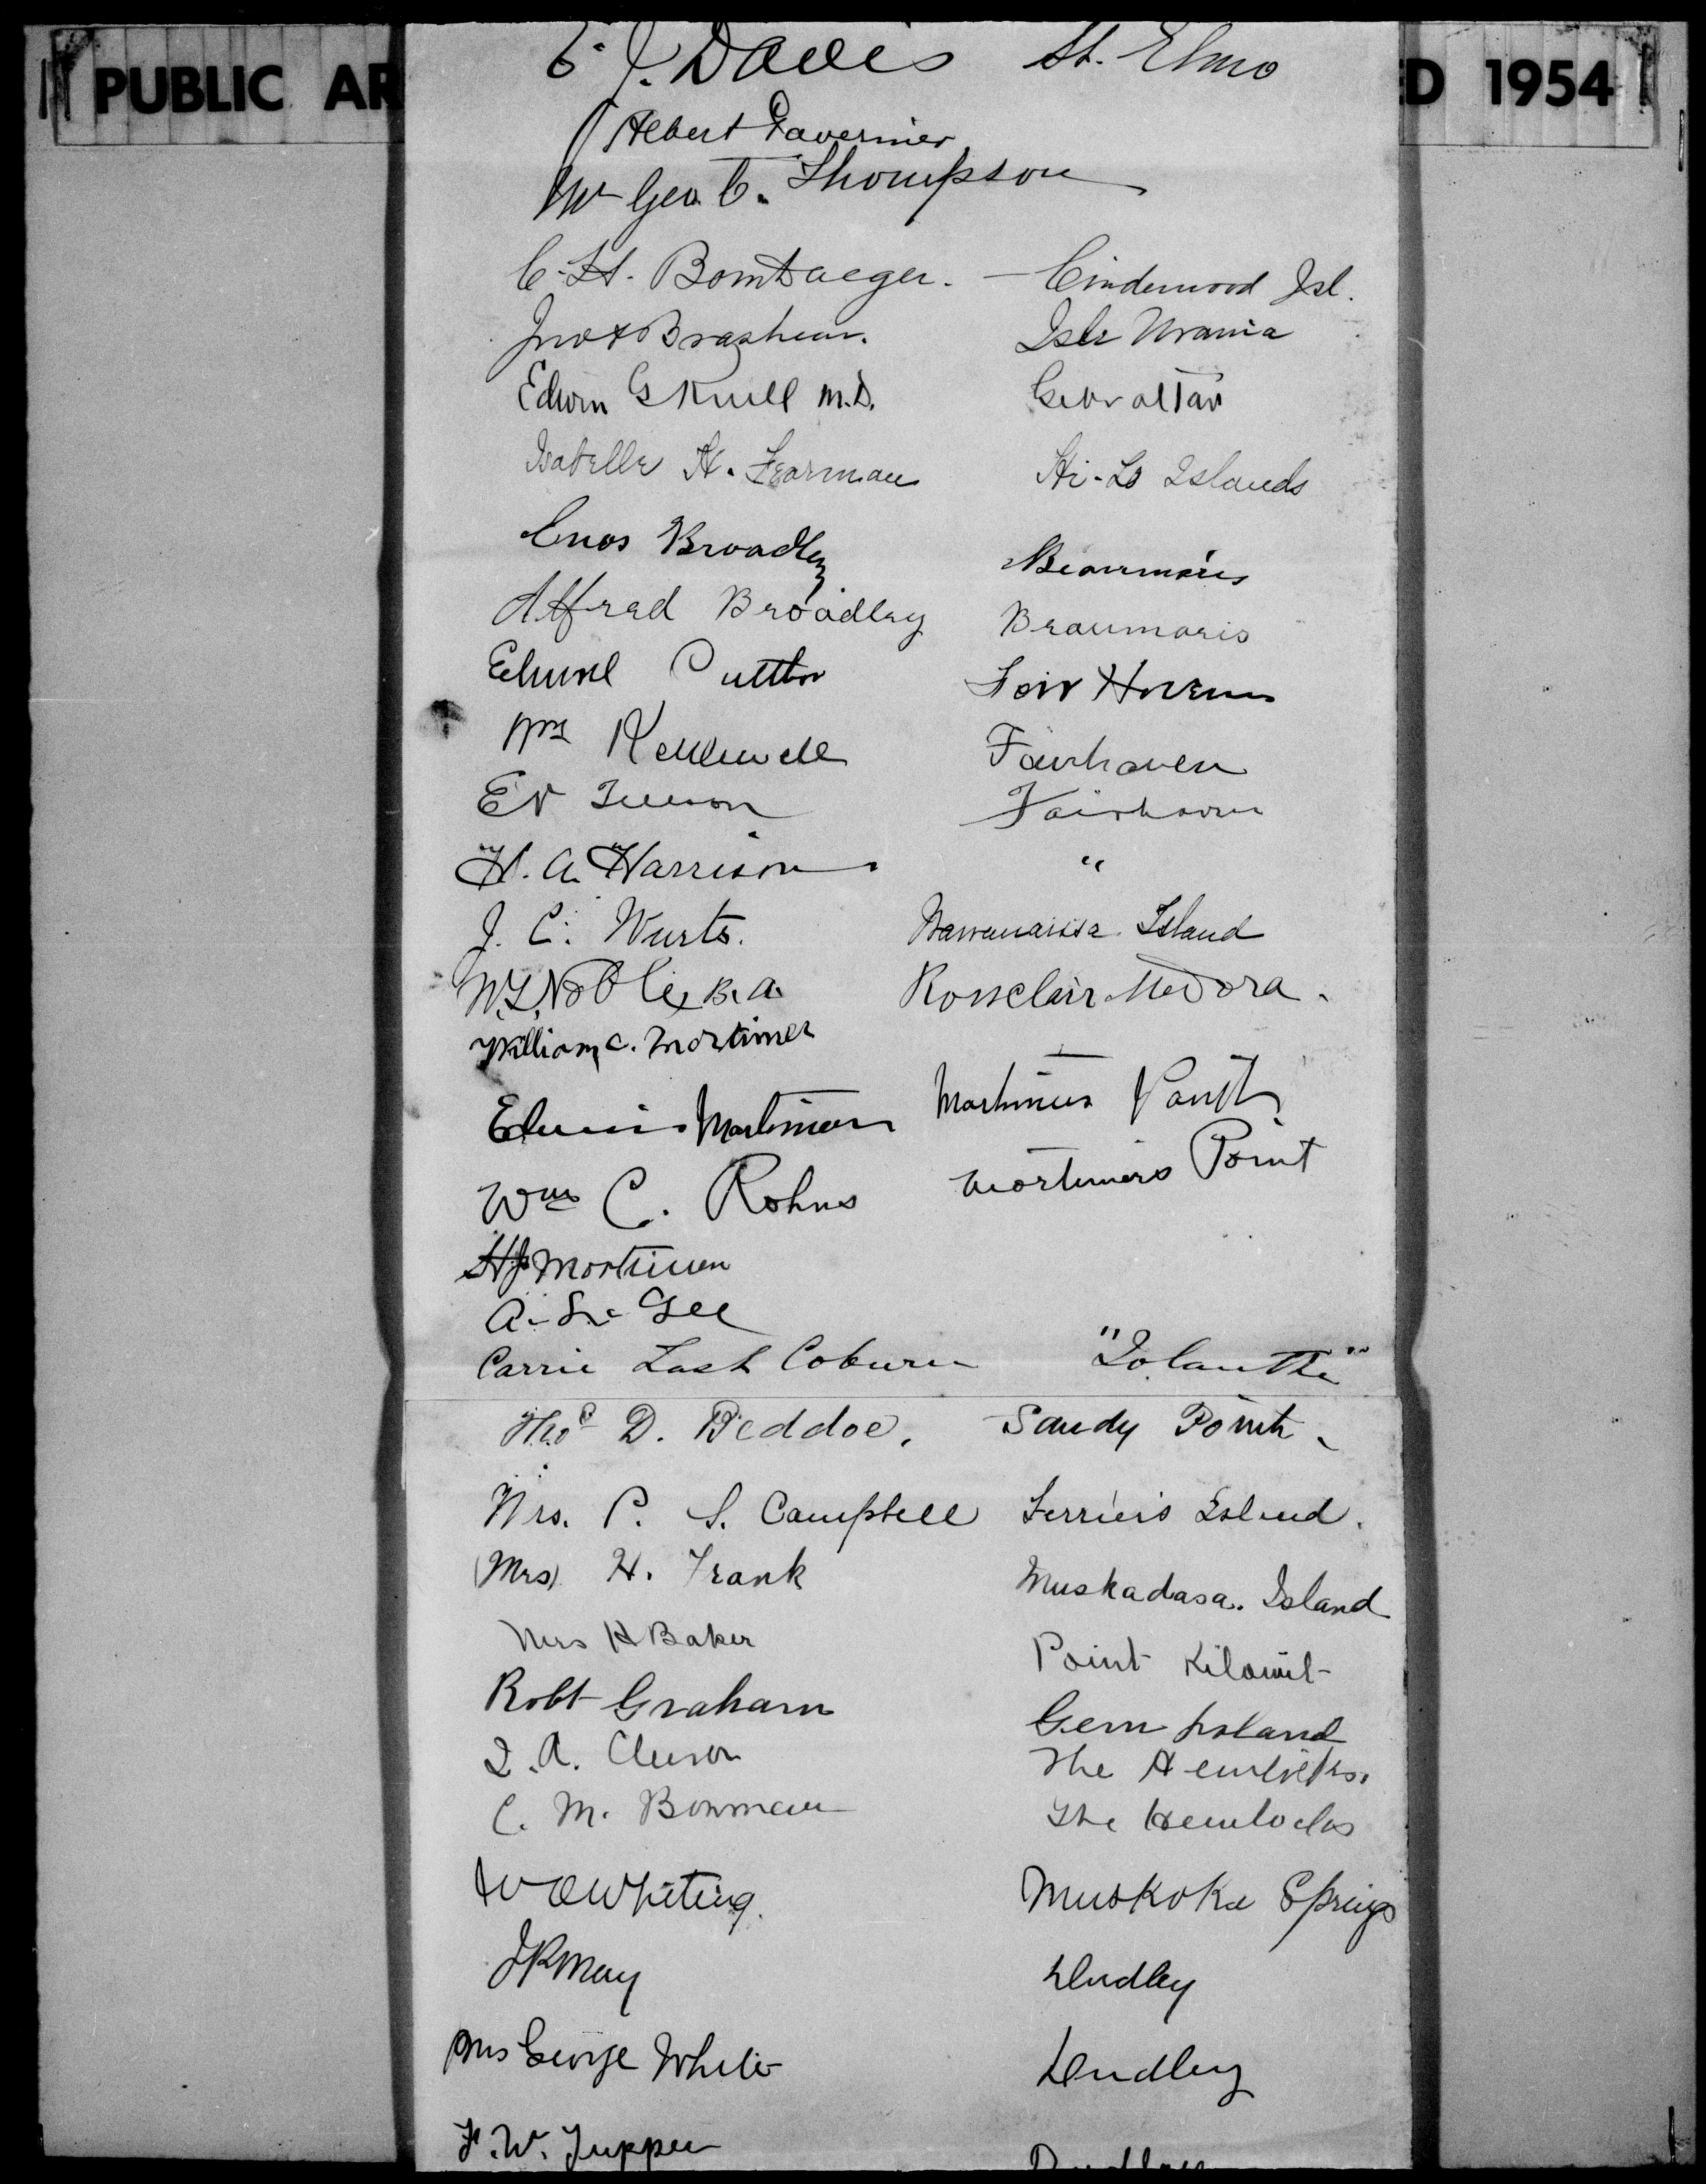 PUBLIC AR
D 1954
E. J. Davis St. Elmo
Albert Tavernier
Mr Geo. C. Thompson
C. H. Bombaeger. — Cinderwood Isl.
Jno A Brashear. Isle Urania
Edwin G Knill M.D. Gibraltar
Isabelle H. Fearman Hi-Lo Islands
Enos Broadley Beaumaris
Alfred Broadley Beaumaris
Fair Haven
Wm Kellewell Fairhaven
Fairhaven
H. A. Harrison "
J. C. Wurts. Island
W. L. Noble, B.A. Rossclair Medora.
William C. Mortimer
Edwin Mortimer Mortimers Point
Wm C. Rohns Mortimers Point
H J Mortimer
Gee
Carrie Lash Coburn "Iolanthe"
Thos D. Beddoe. Sandy Point.
Mrs. P. S. Campbell Ferrier's Island.
(Mrs) H. Frank Muskadasa. Island
Mrs H Baker Point
Robt Graham Gem Island
The Hemlocks.
C. M. Bowman The Hemlocks
Whiting. Muskoka Springs
J R May Dudley
Mrs George White Dudley
F. W. Tupper Dudley